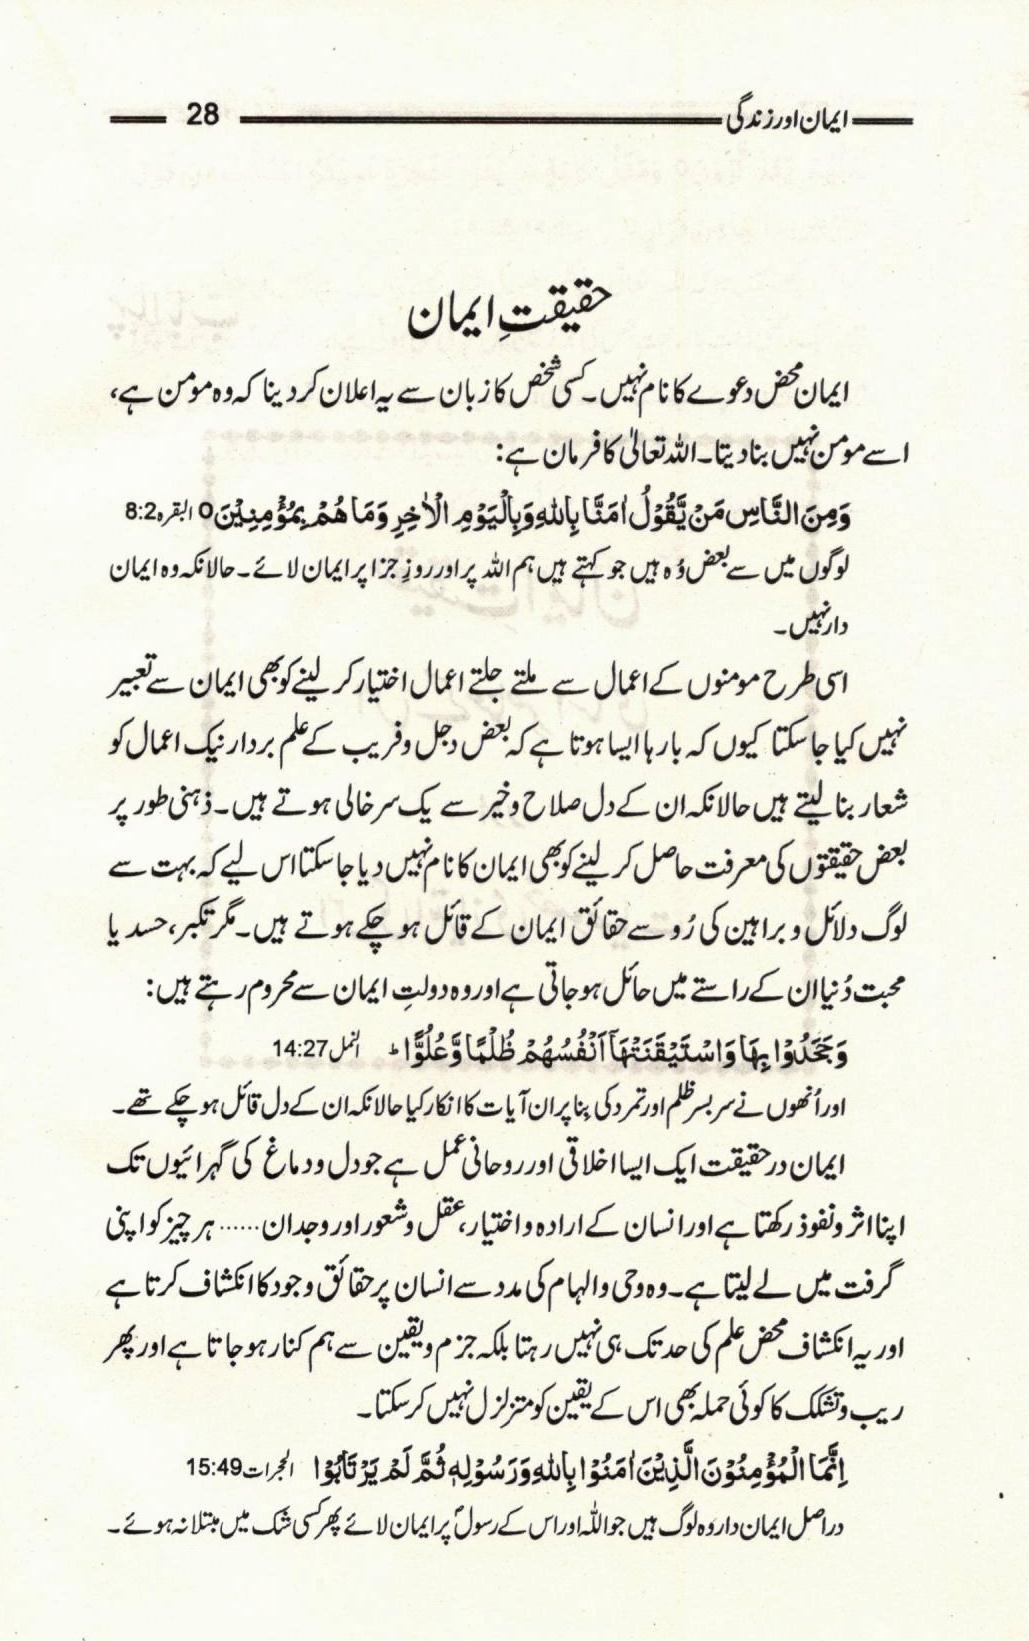 ایمان اور زندگی 28
حقیقتِ ایمان
ایمان محض دعوے کا نام نہیں۔ کسی شخص کا زبان سے یہ اعلان کر دینا کہ وہ مومن ہے،
اسے مومن نہیں بنا دیتا۔ اللہ تعالیٰ کا فرمان ہے:
وَمِنَ النَّاسِ مَنْ يَّقُوْلُ اٰمَنَّا بِاللّٰهِ وَبِالْيَوْمِ الْاٰخِرِ وَمَا هُمْ بِمُؤْمِنِيْنَ o البقرہ 8:2
لوگوں میں سے بعض وُہ ہیں جو کہتے ہیں ہم اللہ پر اور روزِ جزا پر ایمان لائے۔ حالانکہ وہ ایمان
دار نہیں۔
اسی طرح مومنوں کے اعمال سے ملتے جلتے اعمال اختیار کر لینے کو بھی ایمان سے تعبیر
نہیں کیا جا سکتا کیوں کہ بارہا ایسا ہوتا ہے کہ بعض دجل و فریب کے علم بردار نیک اعمال کو
شعار بنا لیتے ہیں حالانکہ ان کے دل صلاح و خیر سے یک سر خالی ہوتے ہیں۔ ذہنی طور پر
بعض حقیقتوں کی معرفت حاصل کر لینے کو بھی ایمان کا نام نہیں دیا جا سکتا اس لیے کہ بہت سے
لوگ دلائل و براہین کی رُو سے حقائق ایمان کے قائل ہو چکے ہوتے ہیں۔ مگر تکبر، حسد یا
محبت دُنیا ان کے راستے میں حائل ہو جاتی ہے اور وہ دولتِ ایمان سے محروم رہتے ہیں:
وَجَحَدُوْا بِهَا وَاسْتَيْقَنَتْهَآ اَنْفُسُهُمْ ظُلْمًا وَّعُلُوًّا ؕ النمل 14:27
اور اُنھوں نے سر بسر ظلم اور تمرد کی بِنا پر ان آیات کا انکار کیا حالانکہ ان کے دل قائل ہو چکے تھے۔
ایمان در حقیقت ایک ایسا اخلاقی اور روحانی عمل ہے جو دل و دماغ کی گہرائیوں تک
اپنا اثر و نفوذ رکھتا ہے اور انسان کے ارادہ و اختیار، عقل و شعور اور وجدان...... ہر چیز کو اپنی
گرفت میں لے لیتا ہے۔ وہ وحی و الہام کی مدد سے انسان پر حقائق وجود کا انکشاف کرتا ہے
اور یہ انکشاف محض علم کی حد تک ہی نہیں رہتا بلکہ جزم و یقین سے ہم کنار ہو جاتا ہے اور پھر
ریب و تشکک کا کوئی حملہ بھی اس کے یقین کو متزلزل نہیں کر سکتا۔
اِنَّمَا الْمُؤْمِنُوْنَ الَّذِيْنَ اٰمَنُوْا بِاللّٰهِ وَرَسُوْلِهٖ ثُمَّ لَمْ يَرْتَابُوْا الحجرات 15:49
دراصل ایمان دار وہ لوگ ہیں جو اللہ اور اس کے رسولؐ پر ایمان لائے پھر کسی شک میں مبتلا نہ ہوئے۔